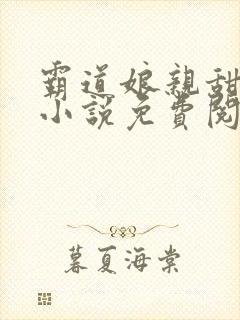 霸道娘親甜
小說免費閱
暮夏海棠